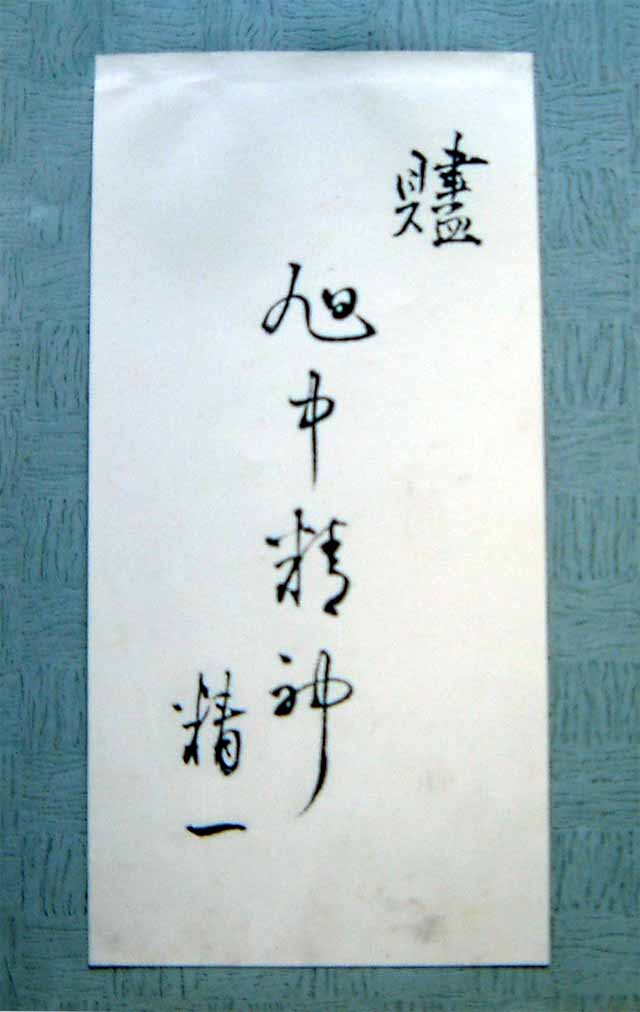 贐
旭中精神
精一